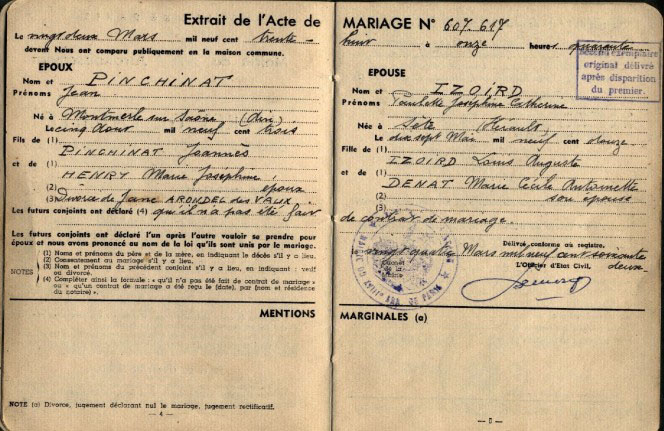 Extrait de l'Acte de
Le vingt deux Mars mil neuf cent trente-
devant Nous ont comparu publiquement en la maison commune.
EPOUX
Nom et PINCHINAT
Prénoms Jean
Né à Montmerle sur Saône (Ain)
Le cinq Août mil neuf cent trois
Fils de (1)
PINCHINAT Joannès
et de (1)
HENRY Marie Josephine
(2) époux
(3) Divorcé de Jane ARONDEL des VAUX
Les futurs conjoints ont déclaré (4) qu'il n'a pas été fait
Les futurs conjoints ont déclaré l'un après l'autre vouloir se prendre pour
époux et nous avons prononcé au nom de la loi qu'ils sont unis par le mariage.
NOTES
(1) Noms et prénoms du père et de la mère, en indiquant le décès s'il y a lieu.
(2) Consentement au mariage s'il y a lieu.
(3) Nom et prénoms du précédent conjoint s'il y a lieu, en indiquant : veuf
ou divorcé.
(4) Compléter ainsi la formule : « qu'il n'a pas été fait de contrat de mariage »
ou « qu'un contrat de mariage a été reçu le (date), par (nom et résidence
du notaire) ».
MENTIONS
NOTE (a) Divorce, jugement déclarant nul le mariage, jugement rectificatif.
— 4 —
MARIAGE N° 607.617
huit à onze heures quarante
exemplaire
original délivré
après disparition
du premier.
EPOUSE
Nom et IZOIRD
Prénoms Paulette Josephine Catherine
Née à Sète Hérault
Le dix sept Mai mil neuf cent douze
Fille de (1)
IZOIRD Louis Auguste
et de (1)
DENAT Marie Cécile Antoinette
(2) son épouse
(3)
de contrat de mariage.
Délivré conforme au registre,
vingt quatre Mars mil neuf cent soixante
deux
L'Officier d'Etat Civil,
Cachet
de la
Mairie
MAIRIE DU XVIIIe ARR. DE PARIS
MARGINALES (a)